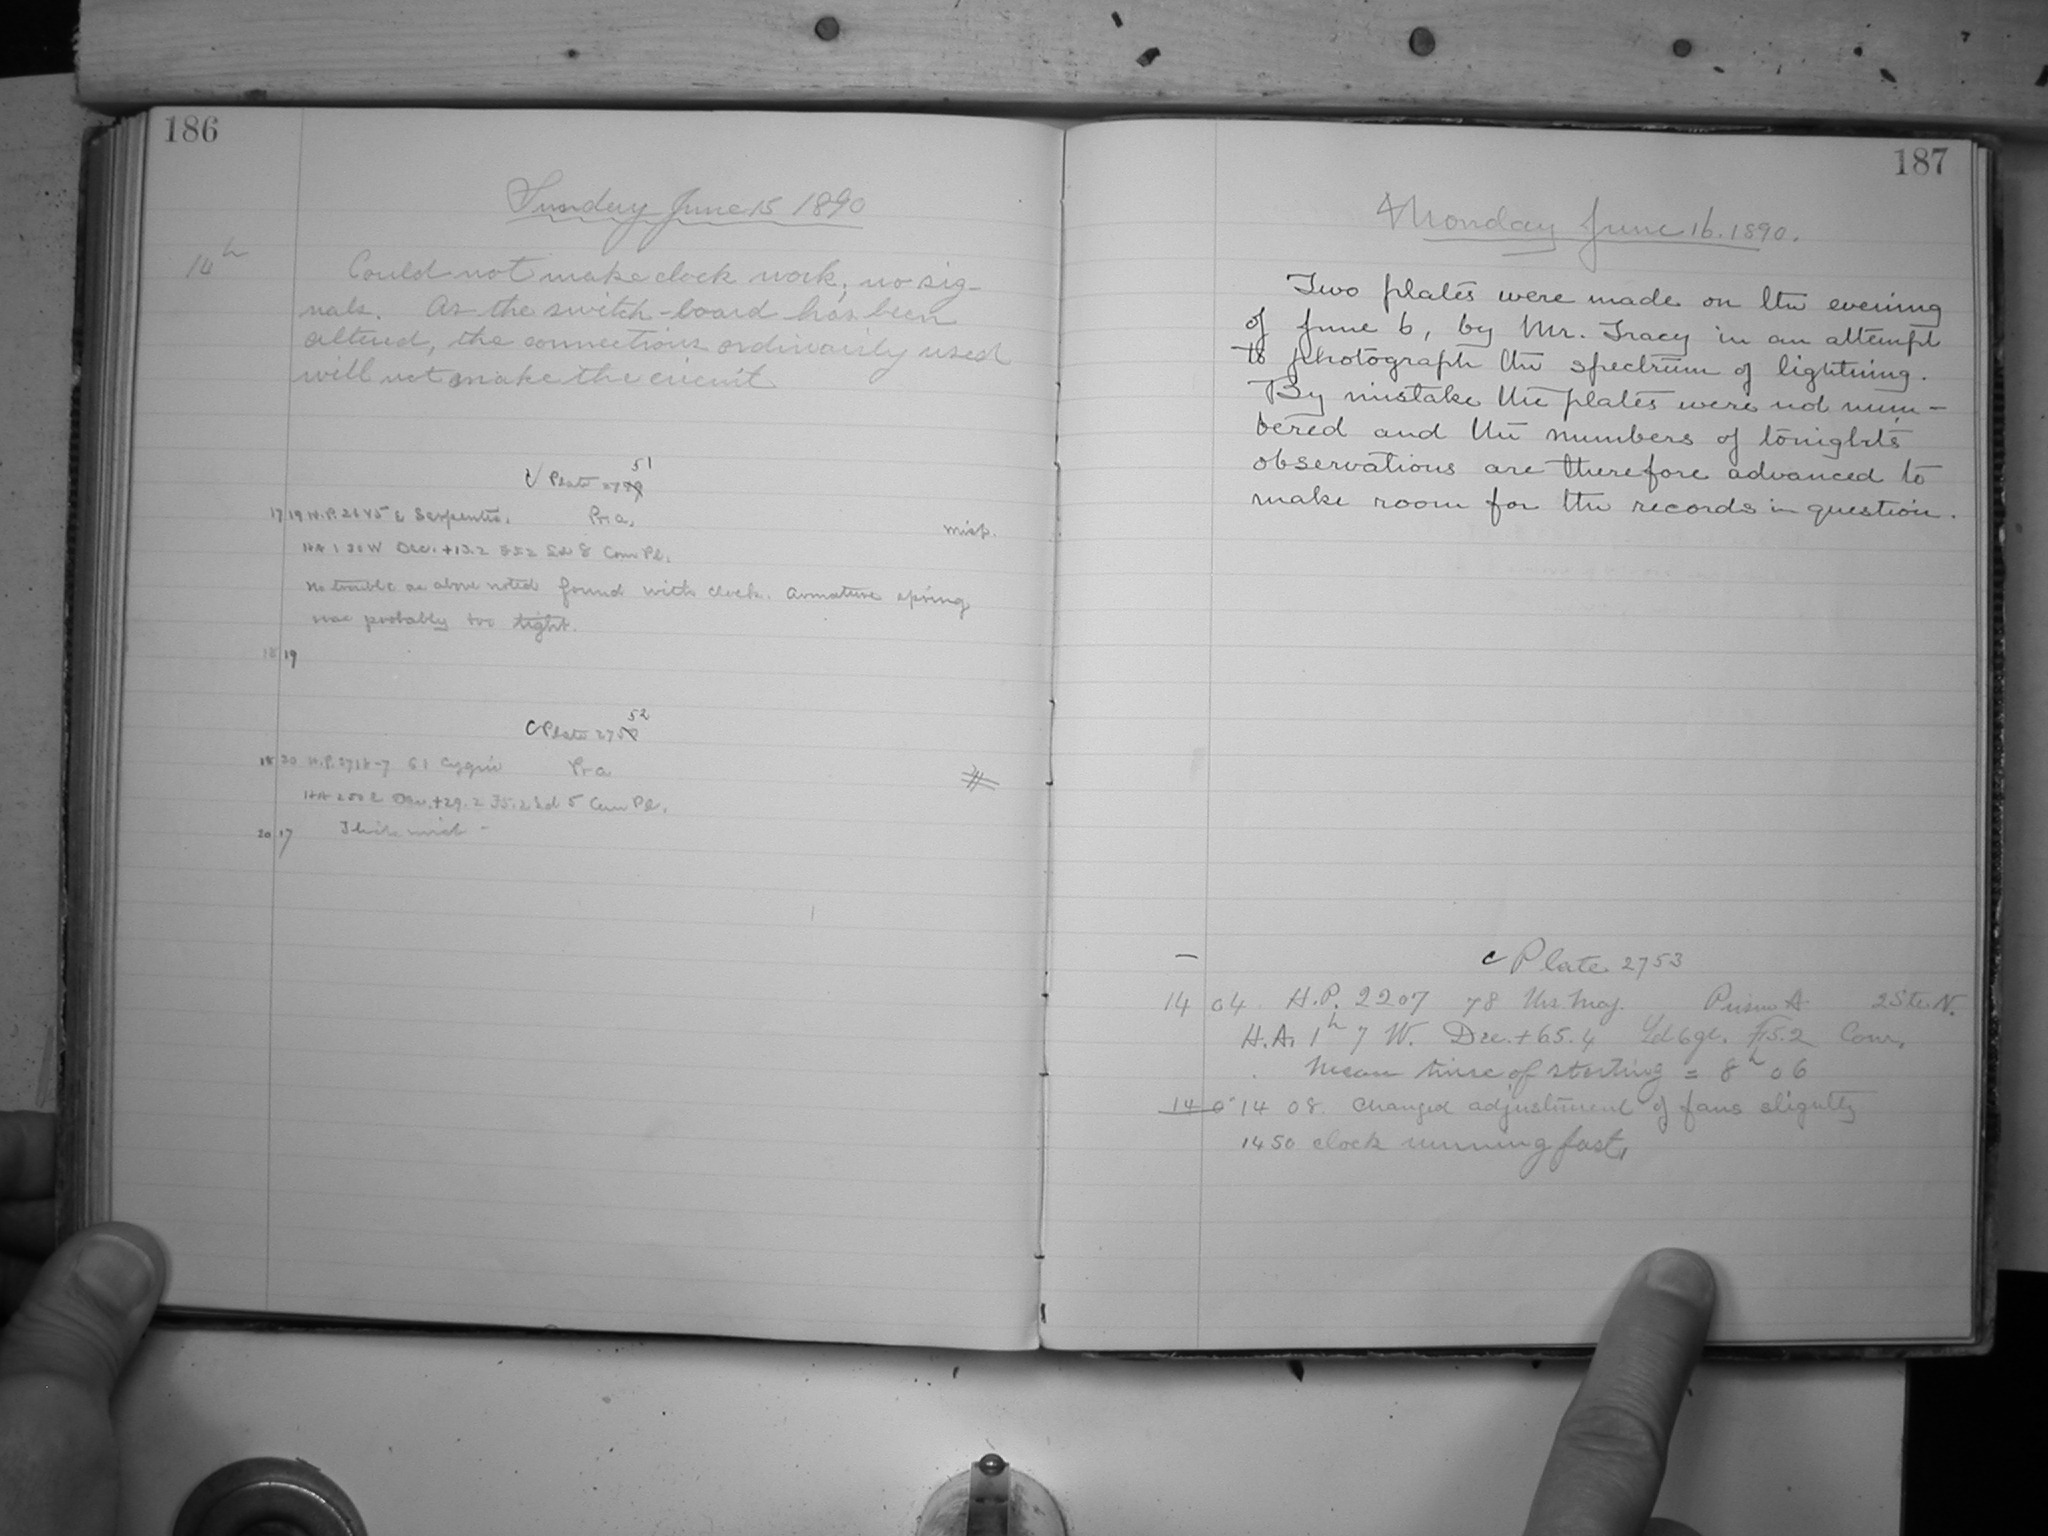 186
Sunday June 15 1890
14h Could not make clock work; no sig-
nals. As the switch-board has been
altered, the connections ordinarily used
will not make the circuit
c Plate 51
17 19 H.P. ε Serpentis. Pr a. Mist.
HA 1 30 W Dec. +13.2 Ld 8 Com Pl.
No trouble as above noted found with clock. Armature spring
was probably too tight.
18 19
c Plate 52
18 30 H.P. 2718-7 61 Cygni Pr a
HA 2 50 E Dec. +29.2 Ld 5 Com Pl.
20 17 Thick mist -
187
Monday June 16. 1890.
Two plates were made on the evening
of June 6, by Mr. Tracy in an attempt
to photograph the spectrum of lightning.
By mistake the plates were not num-
bered and the numbers of tonight's
observations are therefore advanced to
make room for the records in question.
c Plate 2753
14 04. H.P. 2207 78 Urs. Maj. Prism A 2 Ste. N.
H.A. 1h 7 W. Dec. +65.4 Ld 6 gl. 5.2 Com.
Mean time of starting = 8h 06
14 0 14 08. Changed adjustment of fans slightly
1450 clock running fast,